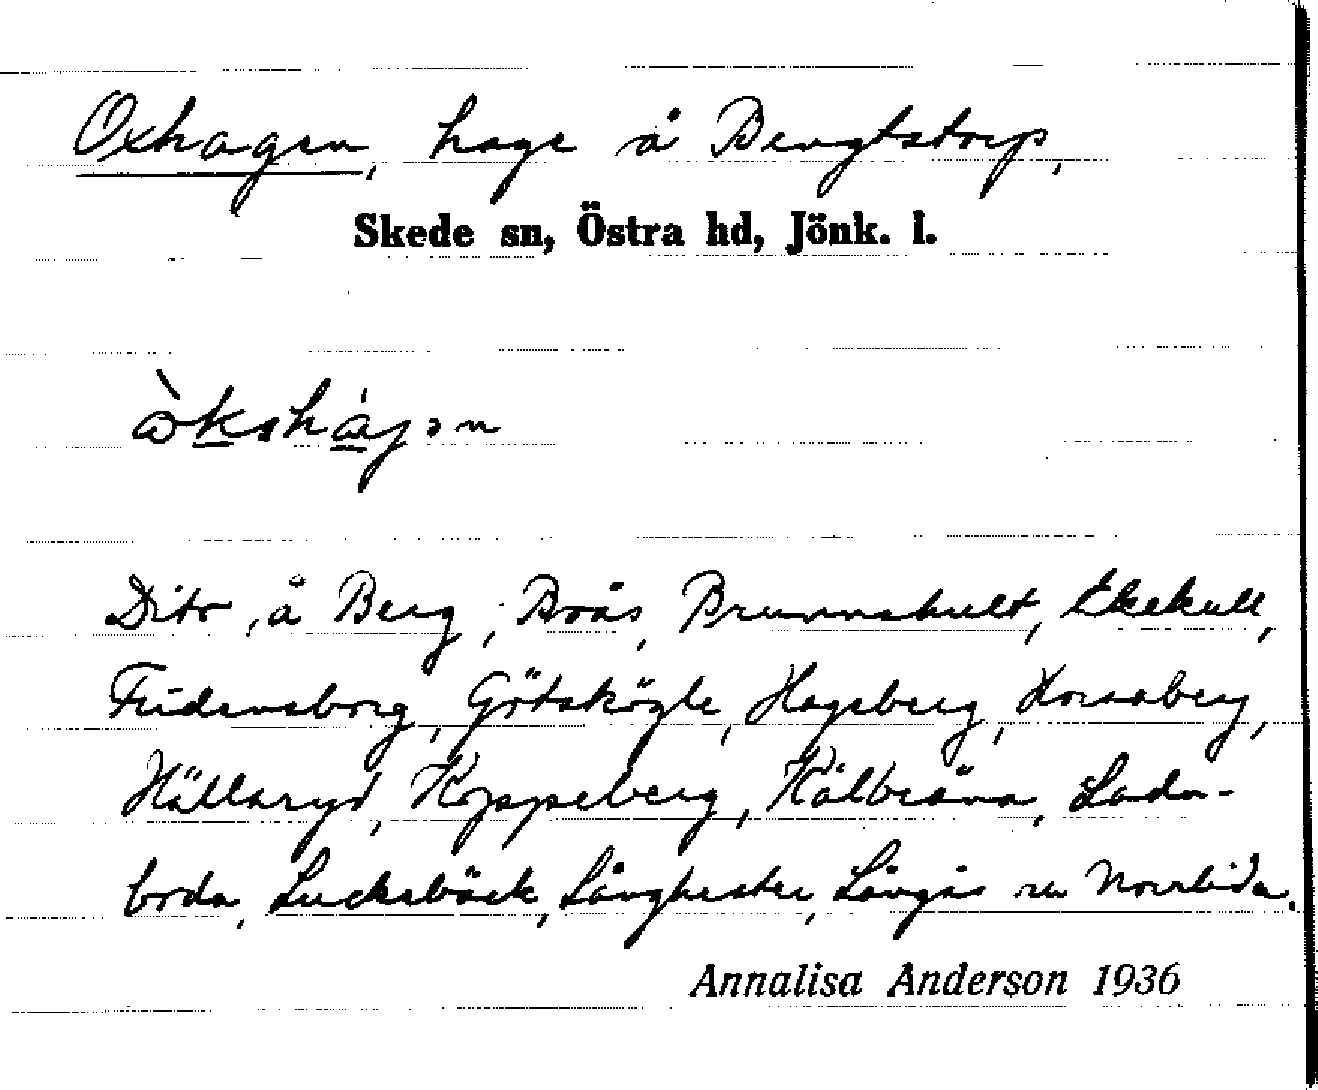 Oxhagen, hage å Bengtstorp,
Skede sn, Östra hd, Jönk. l.
Dito, å Berg, Brås, Brunnshult, Ekekull,
Fridensborg, Götskögle, Hagsberg, Horsaberg,
Hällaryd, Koppseberg, Kålbräna, Ladu-
boda, Lucksbäck, Långhester, Långås o. Norrlida.
Annalisa Anderson 1936